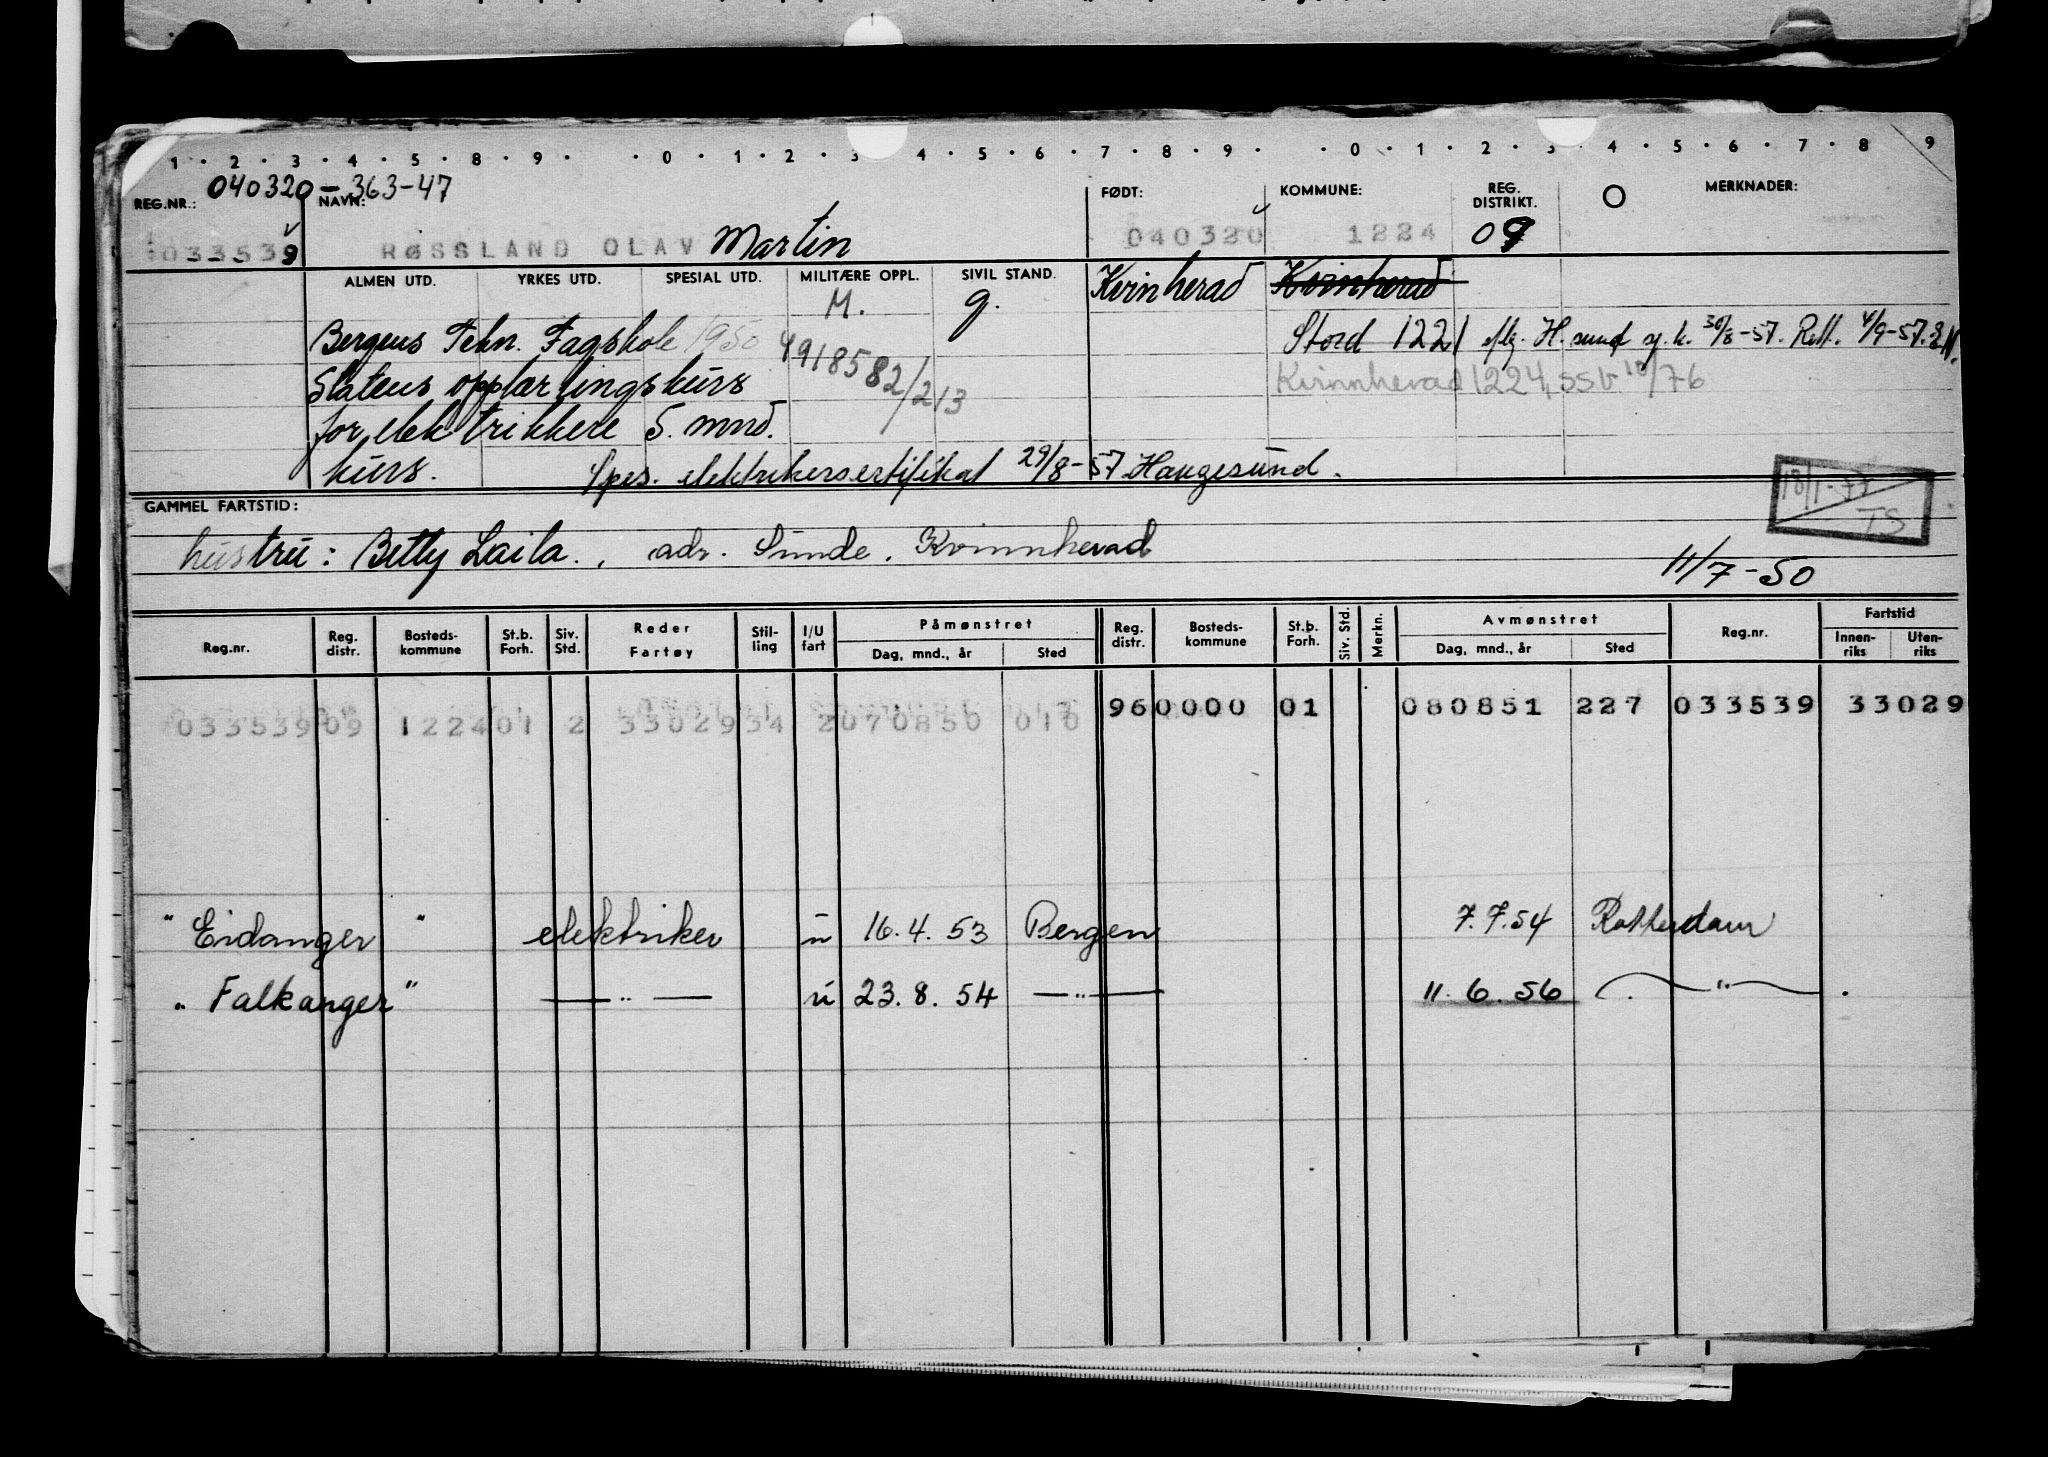 1 · 2 · 3 · 4 · 5 · 8 · 9 · · 0 · 1 · 2 · 3 · 4 · 5 · 6 · 7 · 8 · 9 · · 0 · 1 · 2 · 3 · 4 · 5 · 6 · 7 · 8 · 9
040320-363-47
REG.NR.: NAVN: FØDT: KOMMUNE: REG. DISTRIKT. MERKNADER:
033539 RØSSLAND OLAV Martin 040320 1224 09
ALMEN UTD. YRKES UTD. SPESIAL UTD. MILITÆRE OPPL. SIVIL STAND. Kvinherad Kvinherad
M. g.
Bergens Tekn. Fagskole 1950 Stord 1221 H.sund 30/8-57. 4/9-57.
4918582/213
Statens opplærlingskurs Kvinnherad 1224, SSV 10/76
for elektrikkere 5. mnd.
kurs. Spes. elektrikersertifikat 29/8-57 Haugesund.
18/1-77
TS
GAMMEL FARTSTID:
hustru: Betty Laila., adr. Sunde. Kvinnherad
11/7-50
Reg.nr. Reg. distr. Bosteds-kommune St.b. Forh. Siv. Std. Reder Fartøy Stil-ling I/U fart Påmønstret Dag, mnd., år Sted Reg. distr. Bosteds-kommune St.b. Forh. Siv. Std. Merkn. Avmønstret Dag, mnd., år Sted Reg.nr. Fartstid Innen-riks Uten-riks
033539 09 1224 01 2 33029 34 2 070850 010 96 0000 01 080851 227 033539 33029
"Eidanger" elektriker u 16.4.53 Bergen 7.7.54 Rotterdam
"Falkanger" — " — u 23.8.54 — " — 11.6.56 — " — .